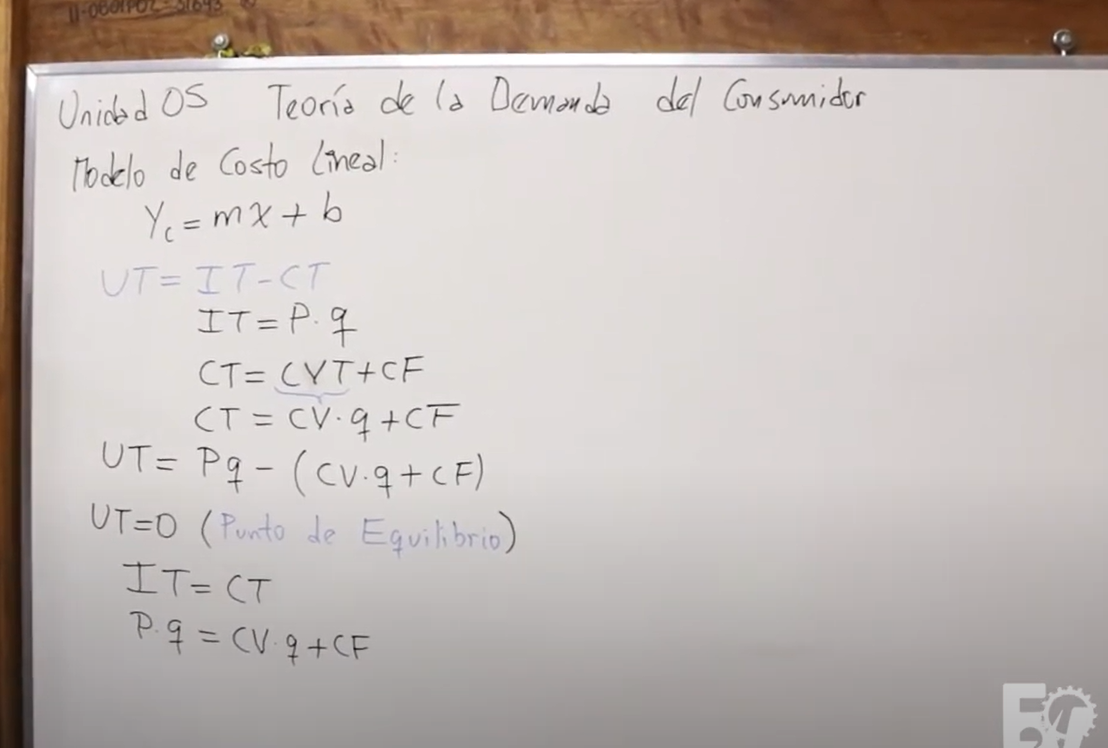 Unidad 05 Teoría de la Demanda del Consumidor
Modelo de Costo Lineal:
Yc = mx + b
UT = IT - CT
IT = P · q
CT = CVT + CF
CT = CV · q + CF
UT = Pq - (CV·q + CF)
UT=0 (Punto de Equilibrio)
IT = CT
P·q = CV·q + CF